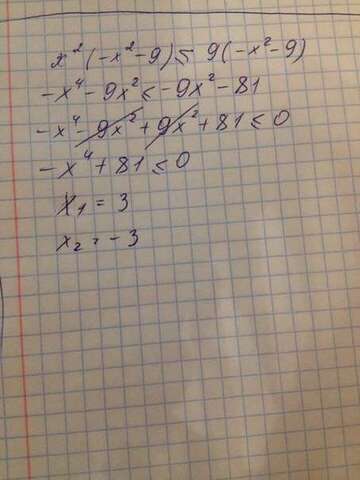 x²(-x²-9) ≤ 9(-x²-9)
-x⁴-9x² ≤ -9x²-81
-x⁴-9x²+9x²+81 ≤ 0
-x⁴+81 ≤ 0
x₁ = 3
x₂ = -3